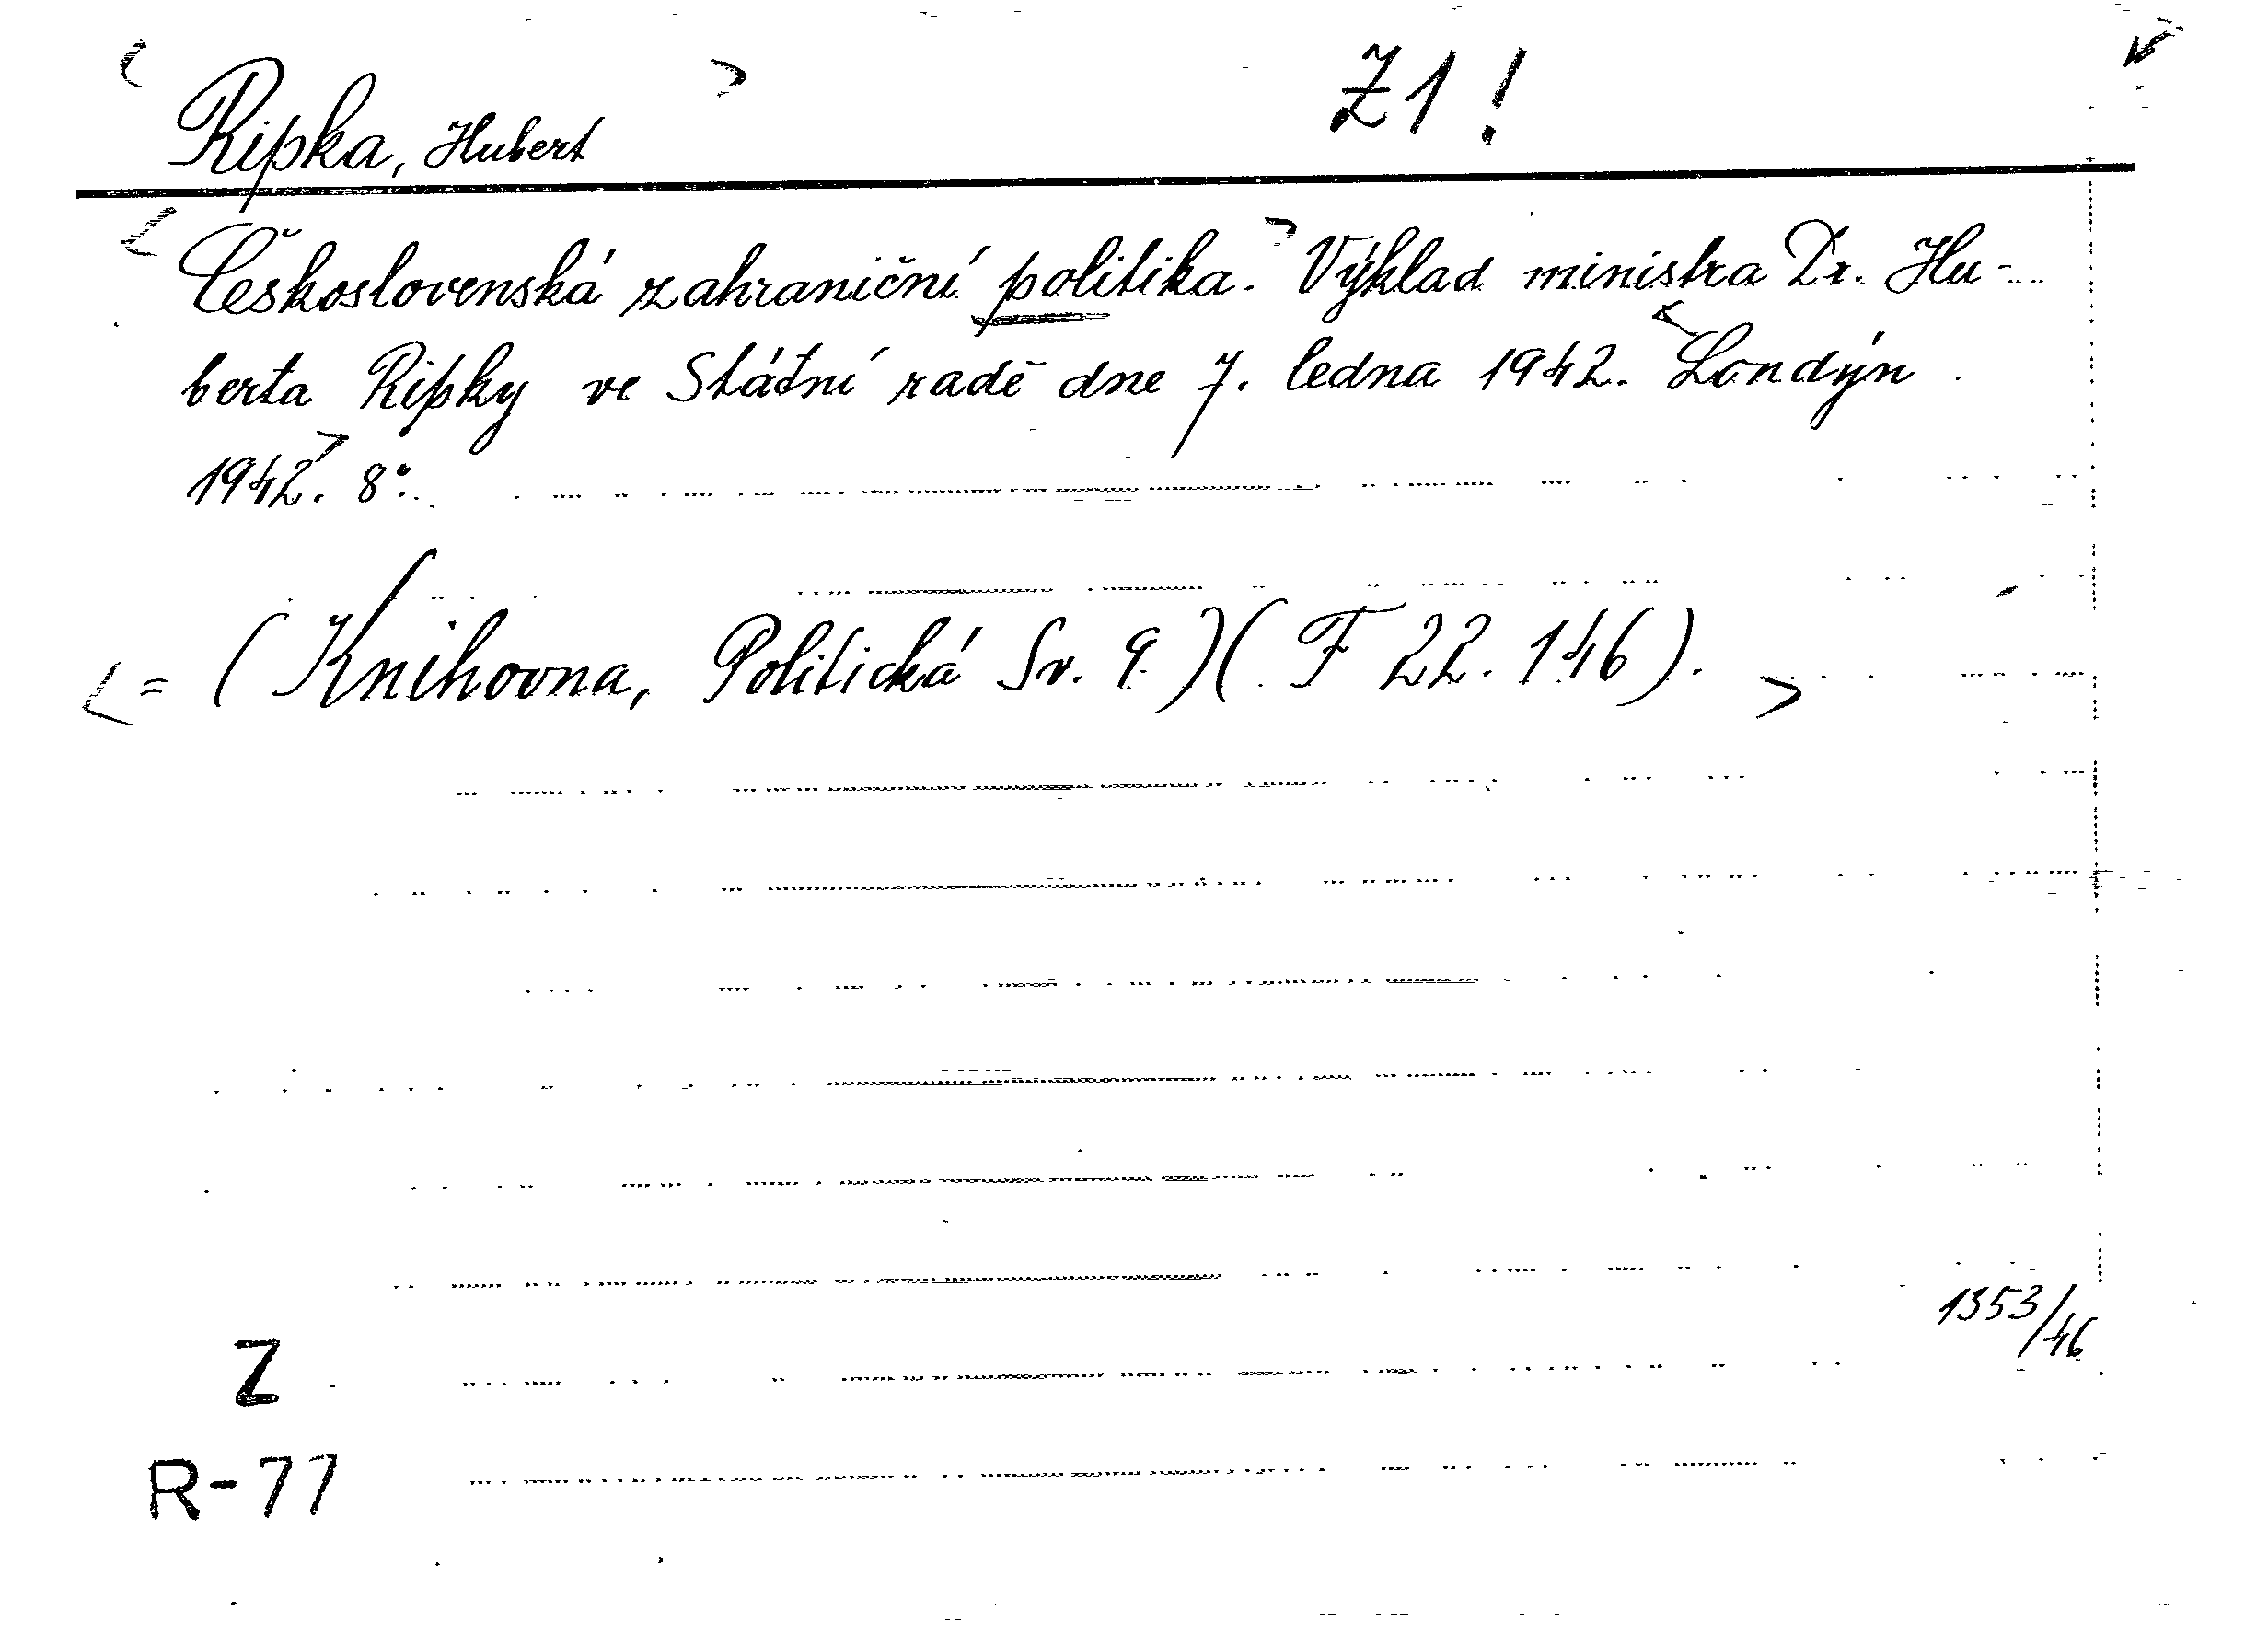 Z1!
Ripka, Hubert
Československá zahraniční politika. Výklad ministra Dr. Hu-
berta Ripky ve Státní radě dne 7. ledna 1942. Londýn
1942. 8°.
= (Knihovna, Politická Sv. 9.)( F 22.146).
1353/46
Z
R-77